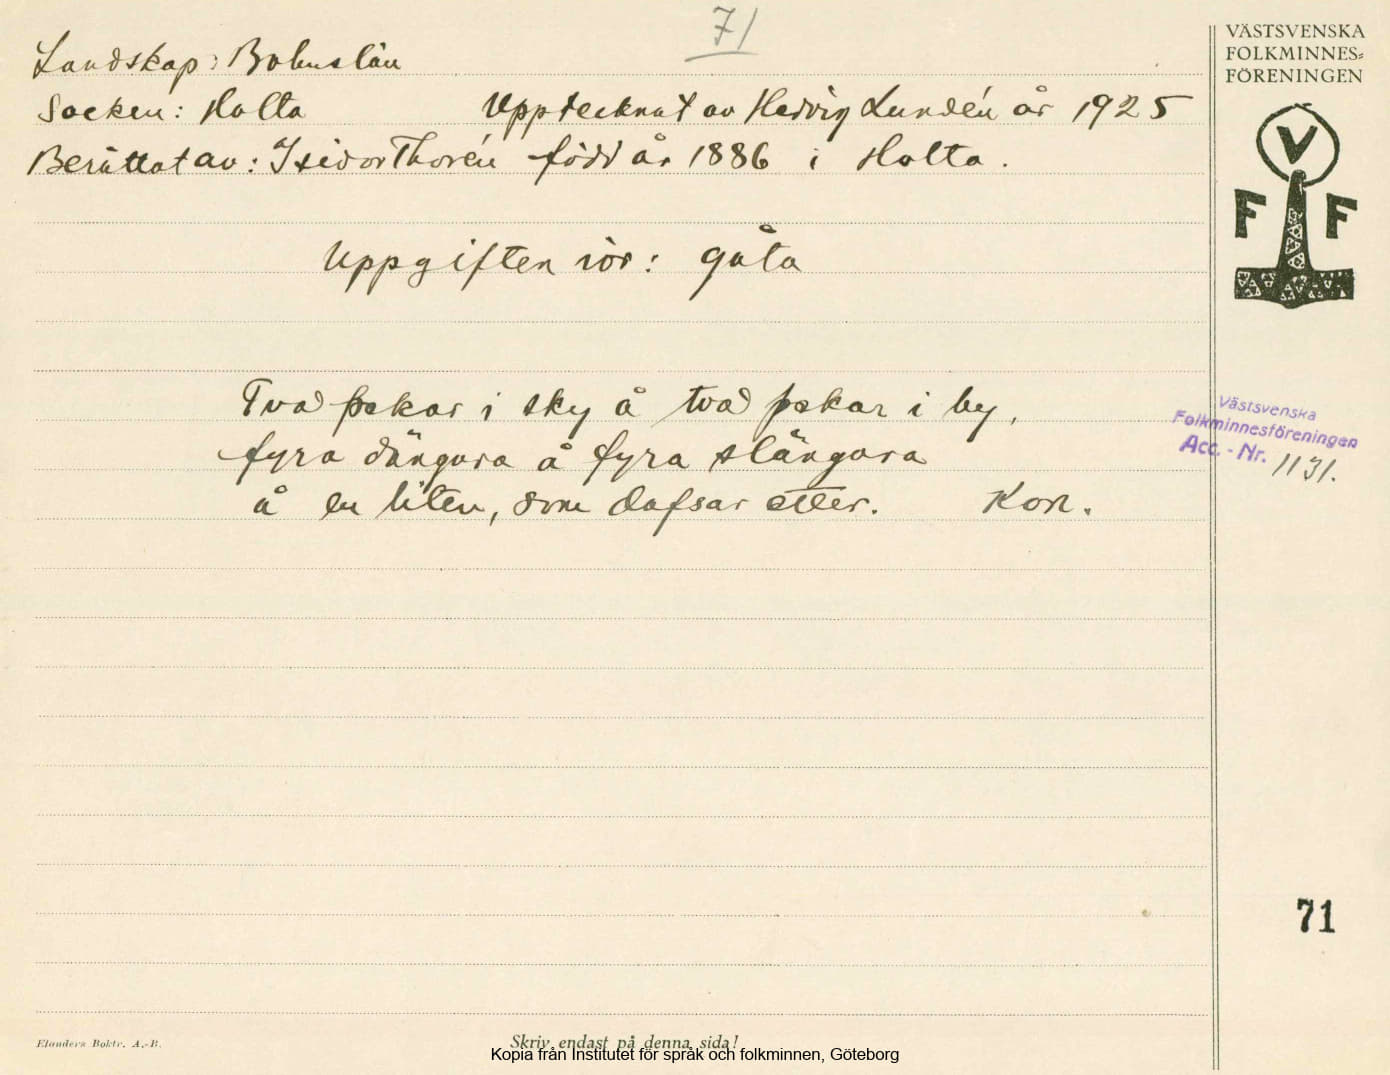 71
VÄSTSVENSKA
FOLKMINNES-
FÖRENINGEN
V
F F
Landskap: Bohuslän
Socken: Holta Upptecknat av Hedvig Lundén år 1925
Berättat av: Isidor Thorén född år 1886 i Holta.
Uppgiften rör: gåta
Två pekar i sky å två pekar i by,
fyra dängara å fyra slängara
å en liten, som dafsar etter. Kon.
Västsvenska
Folkminnesföreningen
Acc. - Nr. 1131.
71
Elanders Boktr. A.-B.
Skriv endast på denna sida!
Kopia från Institutet för språk och folkminnen, Göteborg